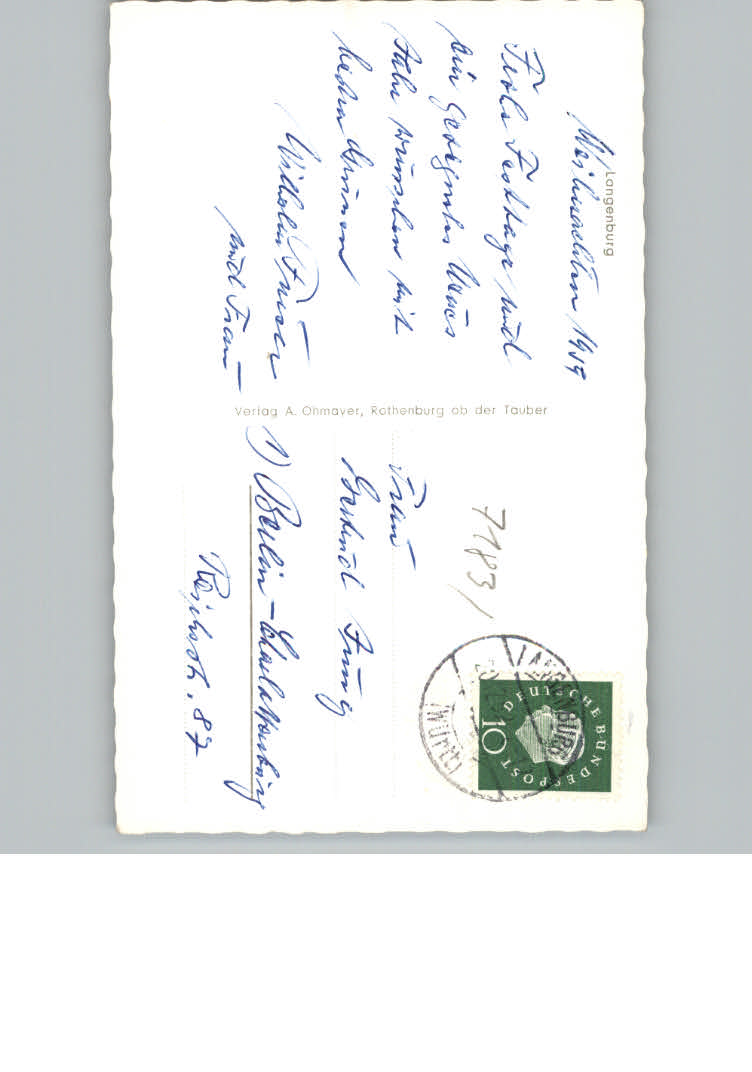 Langenburg
Weihnachten 1959
Frohe Festtage und
ein gesegnetes Neues
Jahr wünschen mit
lieben Grüssen
Wilhelm
und Frau
Verlag A. Ohmayer, Rothenburg ob der Tauber
7183/
Frau
Gertrud Jung
1) Berlin-Charlottenburg
87
LANGENBURG
(Württ)
DEUTSCHE BUNDESPOST
10